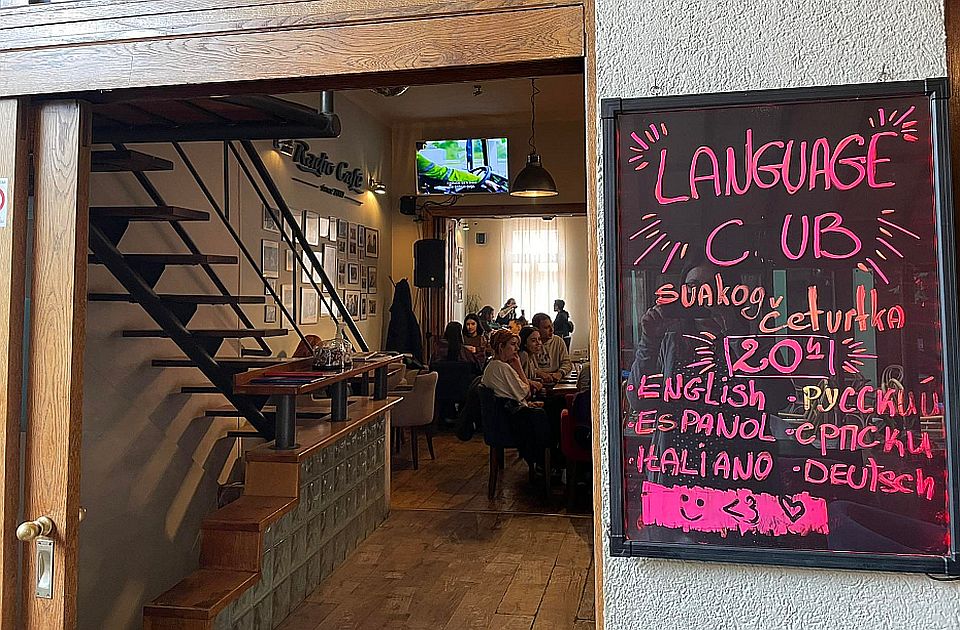 Radio Cafe
LANGUAGE
C UB
svakog
četvrtka
20h
·ENGLISH ·РУССКИЙ
·ESPANOL ·СРПСКИ
·ITALIANO ·DEUTSCH
<3